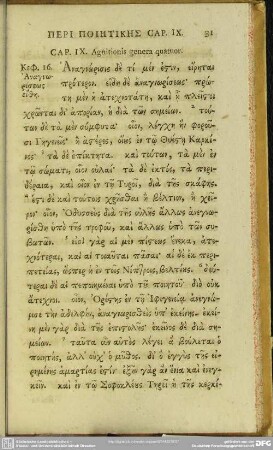 ΠΕΡΙ ΠΟΙΗΤΙΚΗΣ CAP. IX. 81
CAP. IX. Agnitionis genera quatuor.
Κεφ. 16. Ἀναγνώρισις δὲ τί μέν ἐςιν, εἴρηται
Ἀναγνωρίσεως εἴδη. πρότερον. εἴδη δὲ ἀναγνωρίσεως· πρώτη
μὲν ἡ ἀτεχνοτάτη, καὶ ᾗ πλείςῃ
χρῶνται δι' ἀπορίαν, ἡ διὰ τῶν σημείων.
τούτων δὲ τὰ μὲν σύμφυτα· οἷον, λόγχη ἣν φοροῦσι
Γηγενεῖς· ἢ ἀςέρες, οἵους ἐν τῷ Θυέςῃ Καρκίνος·
τὰ δὲ ἐπίκτητα. καὶ τούτων, τὰ μὲν ἐν
τῷ σώματι, οἷον οὐλαί· τὰ δὲ ἐκτὸς, τὰ περιδέραια,
καὶ οἷον ἐν τῇ Τυροῖ, διὰ τῆς σκάφης.
ἔςι δὲ καὶ τούτοις χρῆσθαι ἢ βέλτιον, ἢ χεῖρον·
οἷον, Ὀδυσσεὺς διὰ τῆς οὐλῆς ἄλλως ἀνεγνωρίσθη
ὑπὸ τῆς τροφοῦ, καὶ ἄλλως ὑπὸ τῶν συβωτῶν.
εἰσὶ γὰρ αἱ μὲν πίςεως ἕνεκα, ἀτεχνότεραι,
καὶ αἱ τοιαῦται πᾶσαι· αἱ δὲ ἐκ περιπετείας,
ὥσπερ ἡ ἐν τοῖς Νίπτροις, βελτίους.
δεύτεραι δὲ αἱ πεποιημέναι ὑπὸ τοῦ ποιητοῦ· διὸ οὐκ
ἄτεχνοι. οἷον, Ὀρέςης ἐν τῇ Ἰφιγενείᾳ ἀνεγνώρισε
τὴν ἀδελφὴν, ἀναγνωρισθεὶς ὑπ' ἐκείνης. ἐκείνη
μὲν γὰρ διὰ τῆς ἐπιςολῆς· ἐκεῖνος δὲ διὰ σημείων.
ταῦτα οὖν αὐτὸς λέγει ἃ βούλεται ὁ
ποιητής, ἀλλ' οὐχ ὁ μῦθος. διὸ ἐγγὺς τῆς εἰρημένης
ἁμαρτίας ἐςίν· ἐξῆν γὰρ ἂν ἔνια καὶ ἐνεγκεῖν.
καὶ ἐν τῷ Σοφοκλέους Τηρεῖ ἡ τῆς κερκί-